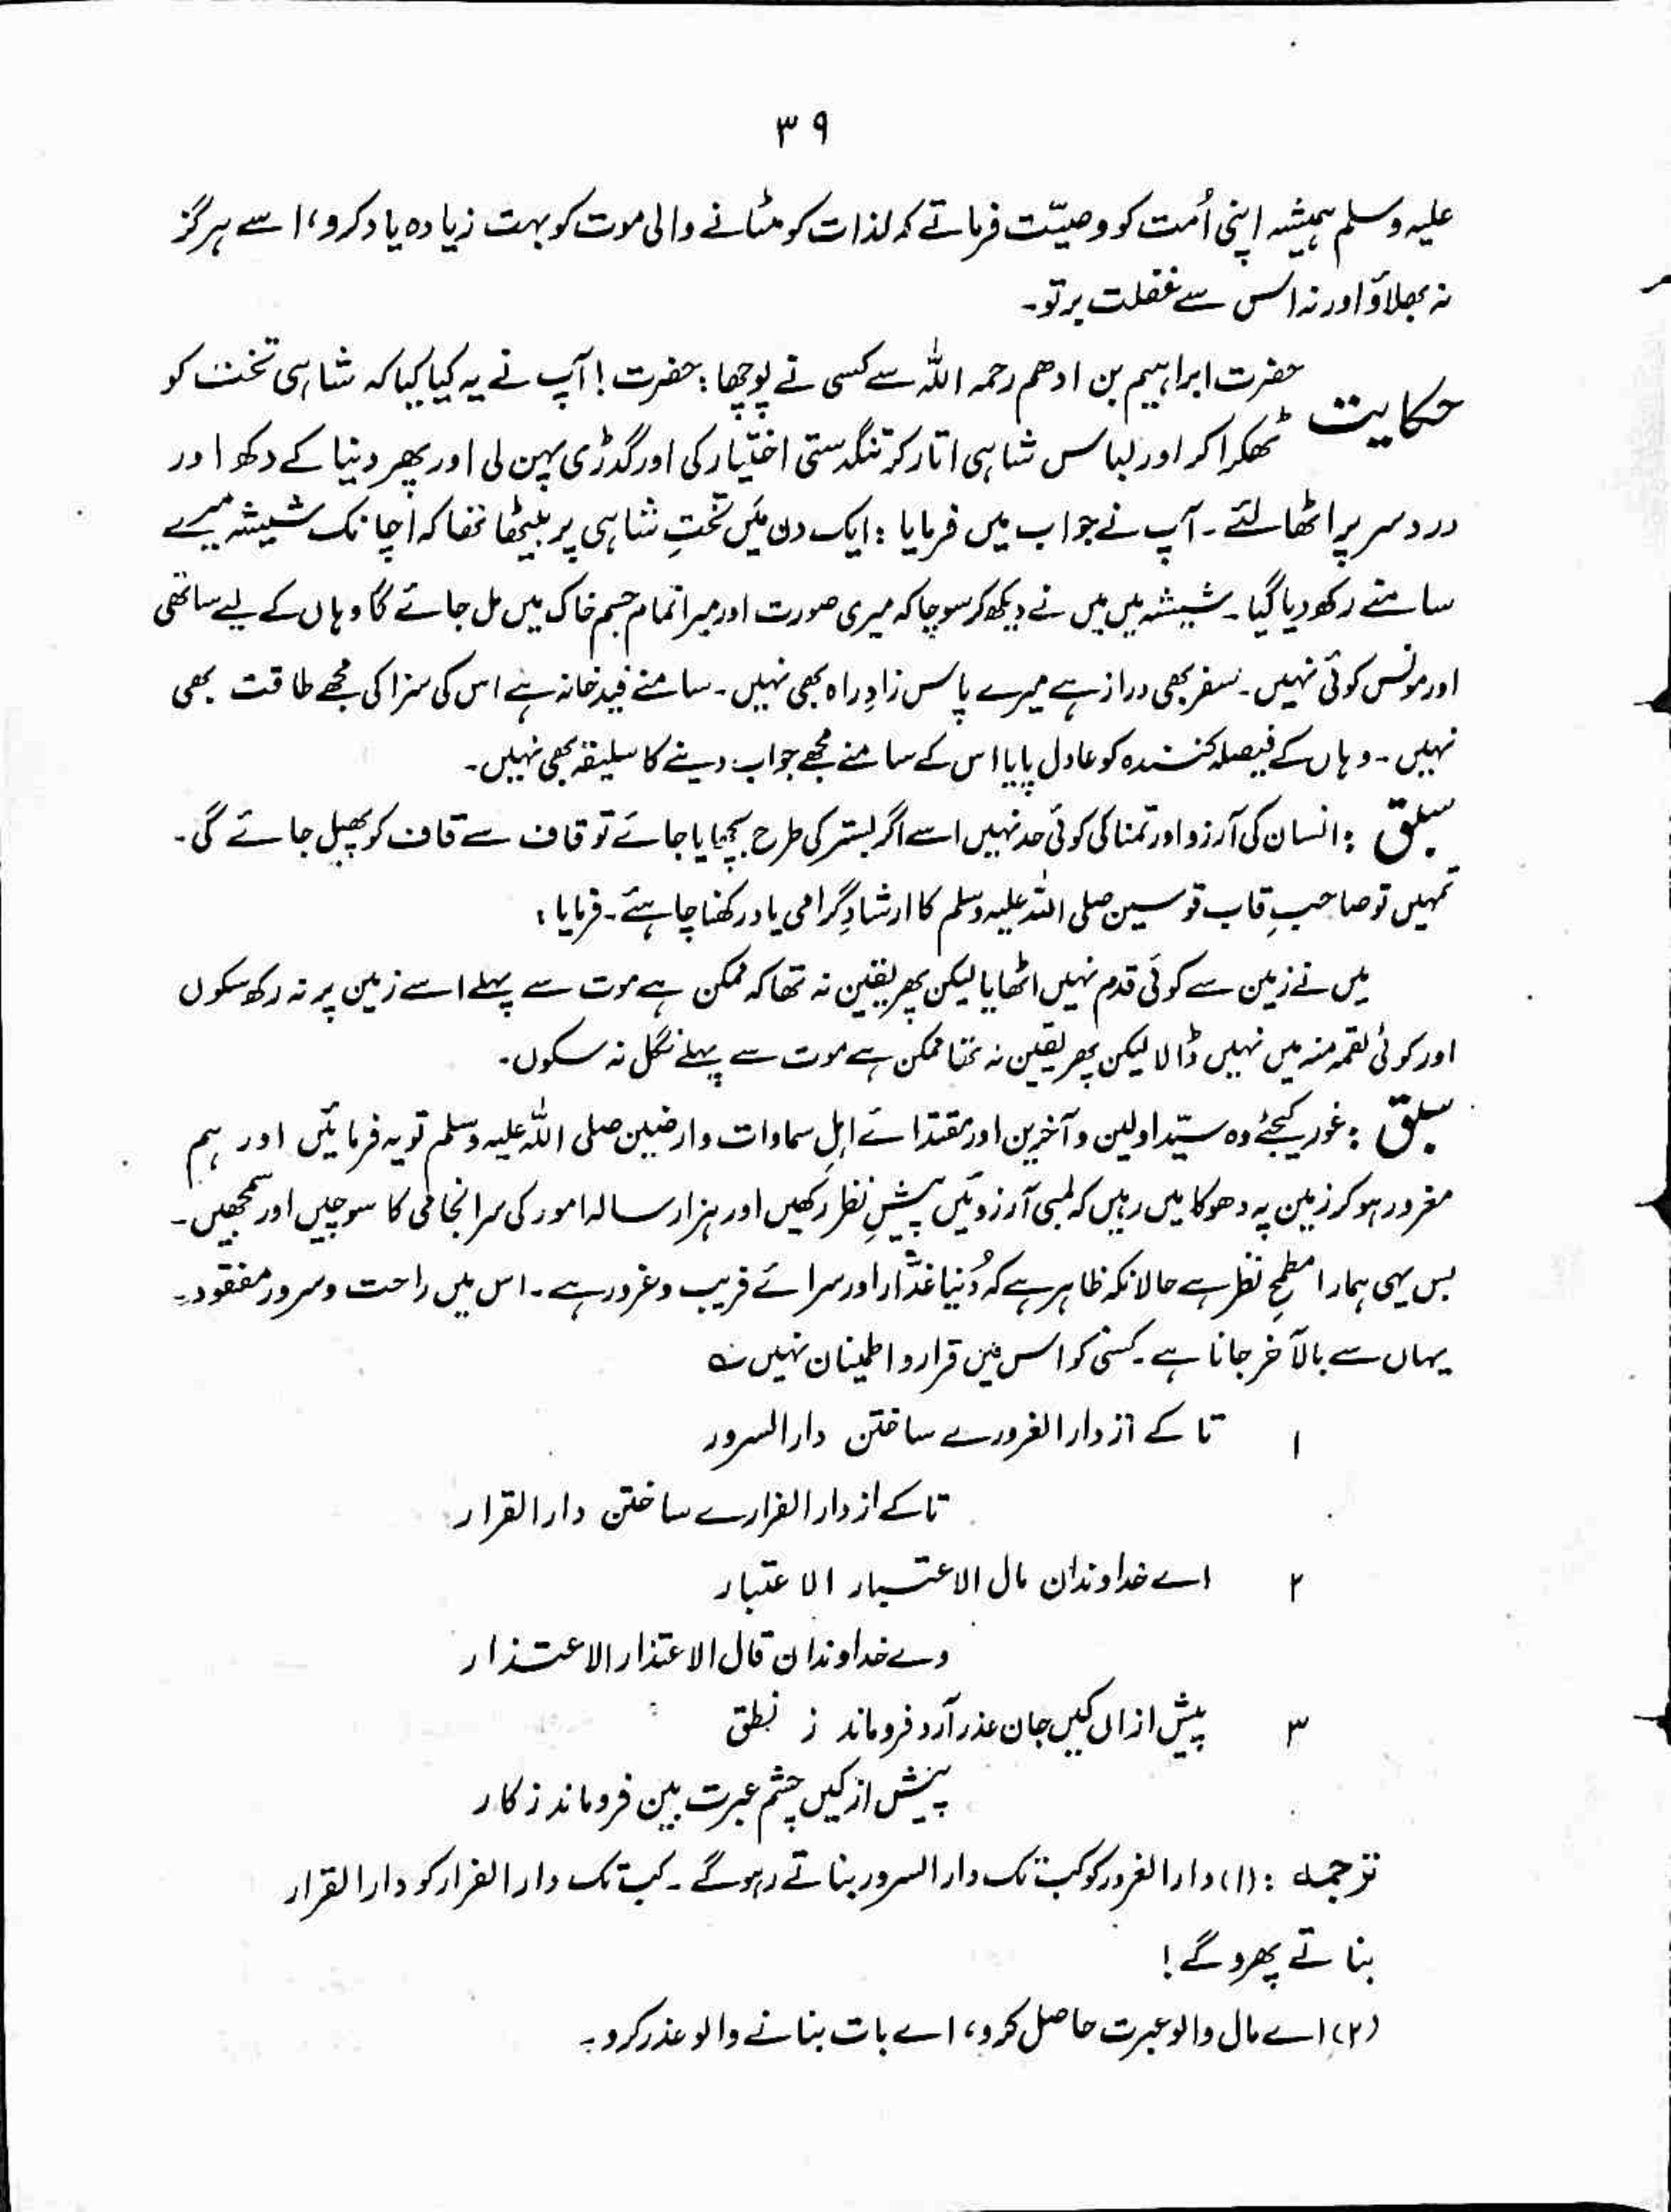 ۳۹
علیہ وسلم ہمیشہ اپنی اُمت کو وصیّت فرماتے کہ لذات کو مٹانے والی موت کو بہت زیادہ یاد کرو، اسے ہرگز
نہ بھلاؤ اور نہ اس سے غفلت برتو۔
حکایت حضرت ابراہیم بن ادھم رحمہ اللہ سے کسی نے پوچھا : حضرت ! آپ نے یہ کیا کیا کہ شاہی تخت کو
ٹھکرا کر اور لباس شاہی اتار کر تنگدستی اختیار کی اور گدڑی پہن لی اور پھر دنیا کے دکھ اور
درد سر پر اٹھا لئے ۔ آپ نے جواب میں فرمایا : ایک دن میَں تختِ شاہی پر بیٹھا تھا کہ اچانک شیشہ میرے
سامنے رکھ دیا گیا ۔ شیشہ میں میں نے دیکھ کر سوچا کہ میری صورت اور میرا تمام جسم خاک میں مل جائے گا وہاں کے لیے ساتھی
اور مونس کوئی نہیں ۔ سفر بھی دراز ہے میرے پاس زادِ راہ بھی نہیں ۔ سامنے قید خانہ ہے اس کی سزا کی مجھے طاقت بھی
نہیں ۔ وہاں کے فیصلہ کنندہ کو عادل پایا اس کے سامنے مجھے جواب دینے کا سلیقہ بھی نہیں ۔
سبق : انسان کی آرزو اور تمنا کی کوئی حد نہیں اسے اگر بستر کی طرح بچھایا جائے تو قاف سے قاف کو پھیل جائے گی ۔
تمہیں تو صاحبِ قاب قوسین صلی اللہ علیہ وسلم کا ارشادِ گرامی یاد رکھنا چاہئے ۔ فرمایا :
میں نے زمین سے کوئی قدم نہیں اٹھایا لیکن پھر یقین نہ تھا کہ ممکن ہے موت سے پہلے اسے زمین پر نہ رکھ سکوں
اور کوئی لقمہ منہ میں نہیں ڈالا لیکن پھر یقین نہ تھا ممکن ہے موت سے پہلے نگل نہ سکوں ۔
سبق : غور کیجئے وہ سیّد اولین و آخرین اور مقتدائے اہلِ سماوات و ارضین صلی اللہ علیہ وسلم تو یہ فرمائیں اور ہم
مغرور ہو کر زمین پہ دھوکا میں رہیں کہ لمبی آرزوئیں پیشِ نظر رکھیں اور ہزار سالہ امور کی سرانجامی کا سوچیں اور سمجھیں ۔
بس یہی ہمارا مطمحِ نظر ہے حالانکہ ظاہر ہے کہ دُنیا غدّار اور سرائے فریب و غرور ہے ۔ اس میں راحت و سرور مفقود ۔
یہاں سے بالآخر جانا ہے ۔ کسی کو اس میں قرار و اطمینان نہیں ؎
۱ تا کے از دار الغرورے ساختن دار السرور
تا کے از دار الفرارے ساختن دار القرار
۲ اے خداوندان مال الاعتبار الاعتبار
وے خداوندان قال الاعتذار الاعتذار
۳ پیش ازاں کیں جان عذر آرد فروماند ز نطق
پیش از کیں چشم عبرت بین فروماند ز کار
ترجمہ : (۱) دار الغرور کو کب تک دار السرور بناتے رہو گے ۔ کب تک دار الفرار کو دار القرار
بناتے پھرو گے !
(۲) اے مال والو عبرت حاصل کرو، اے بات بنانے والو عذر کرو ۔